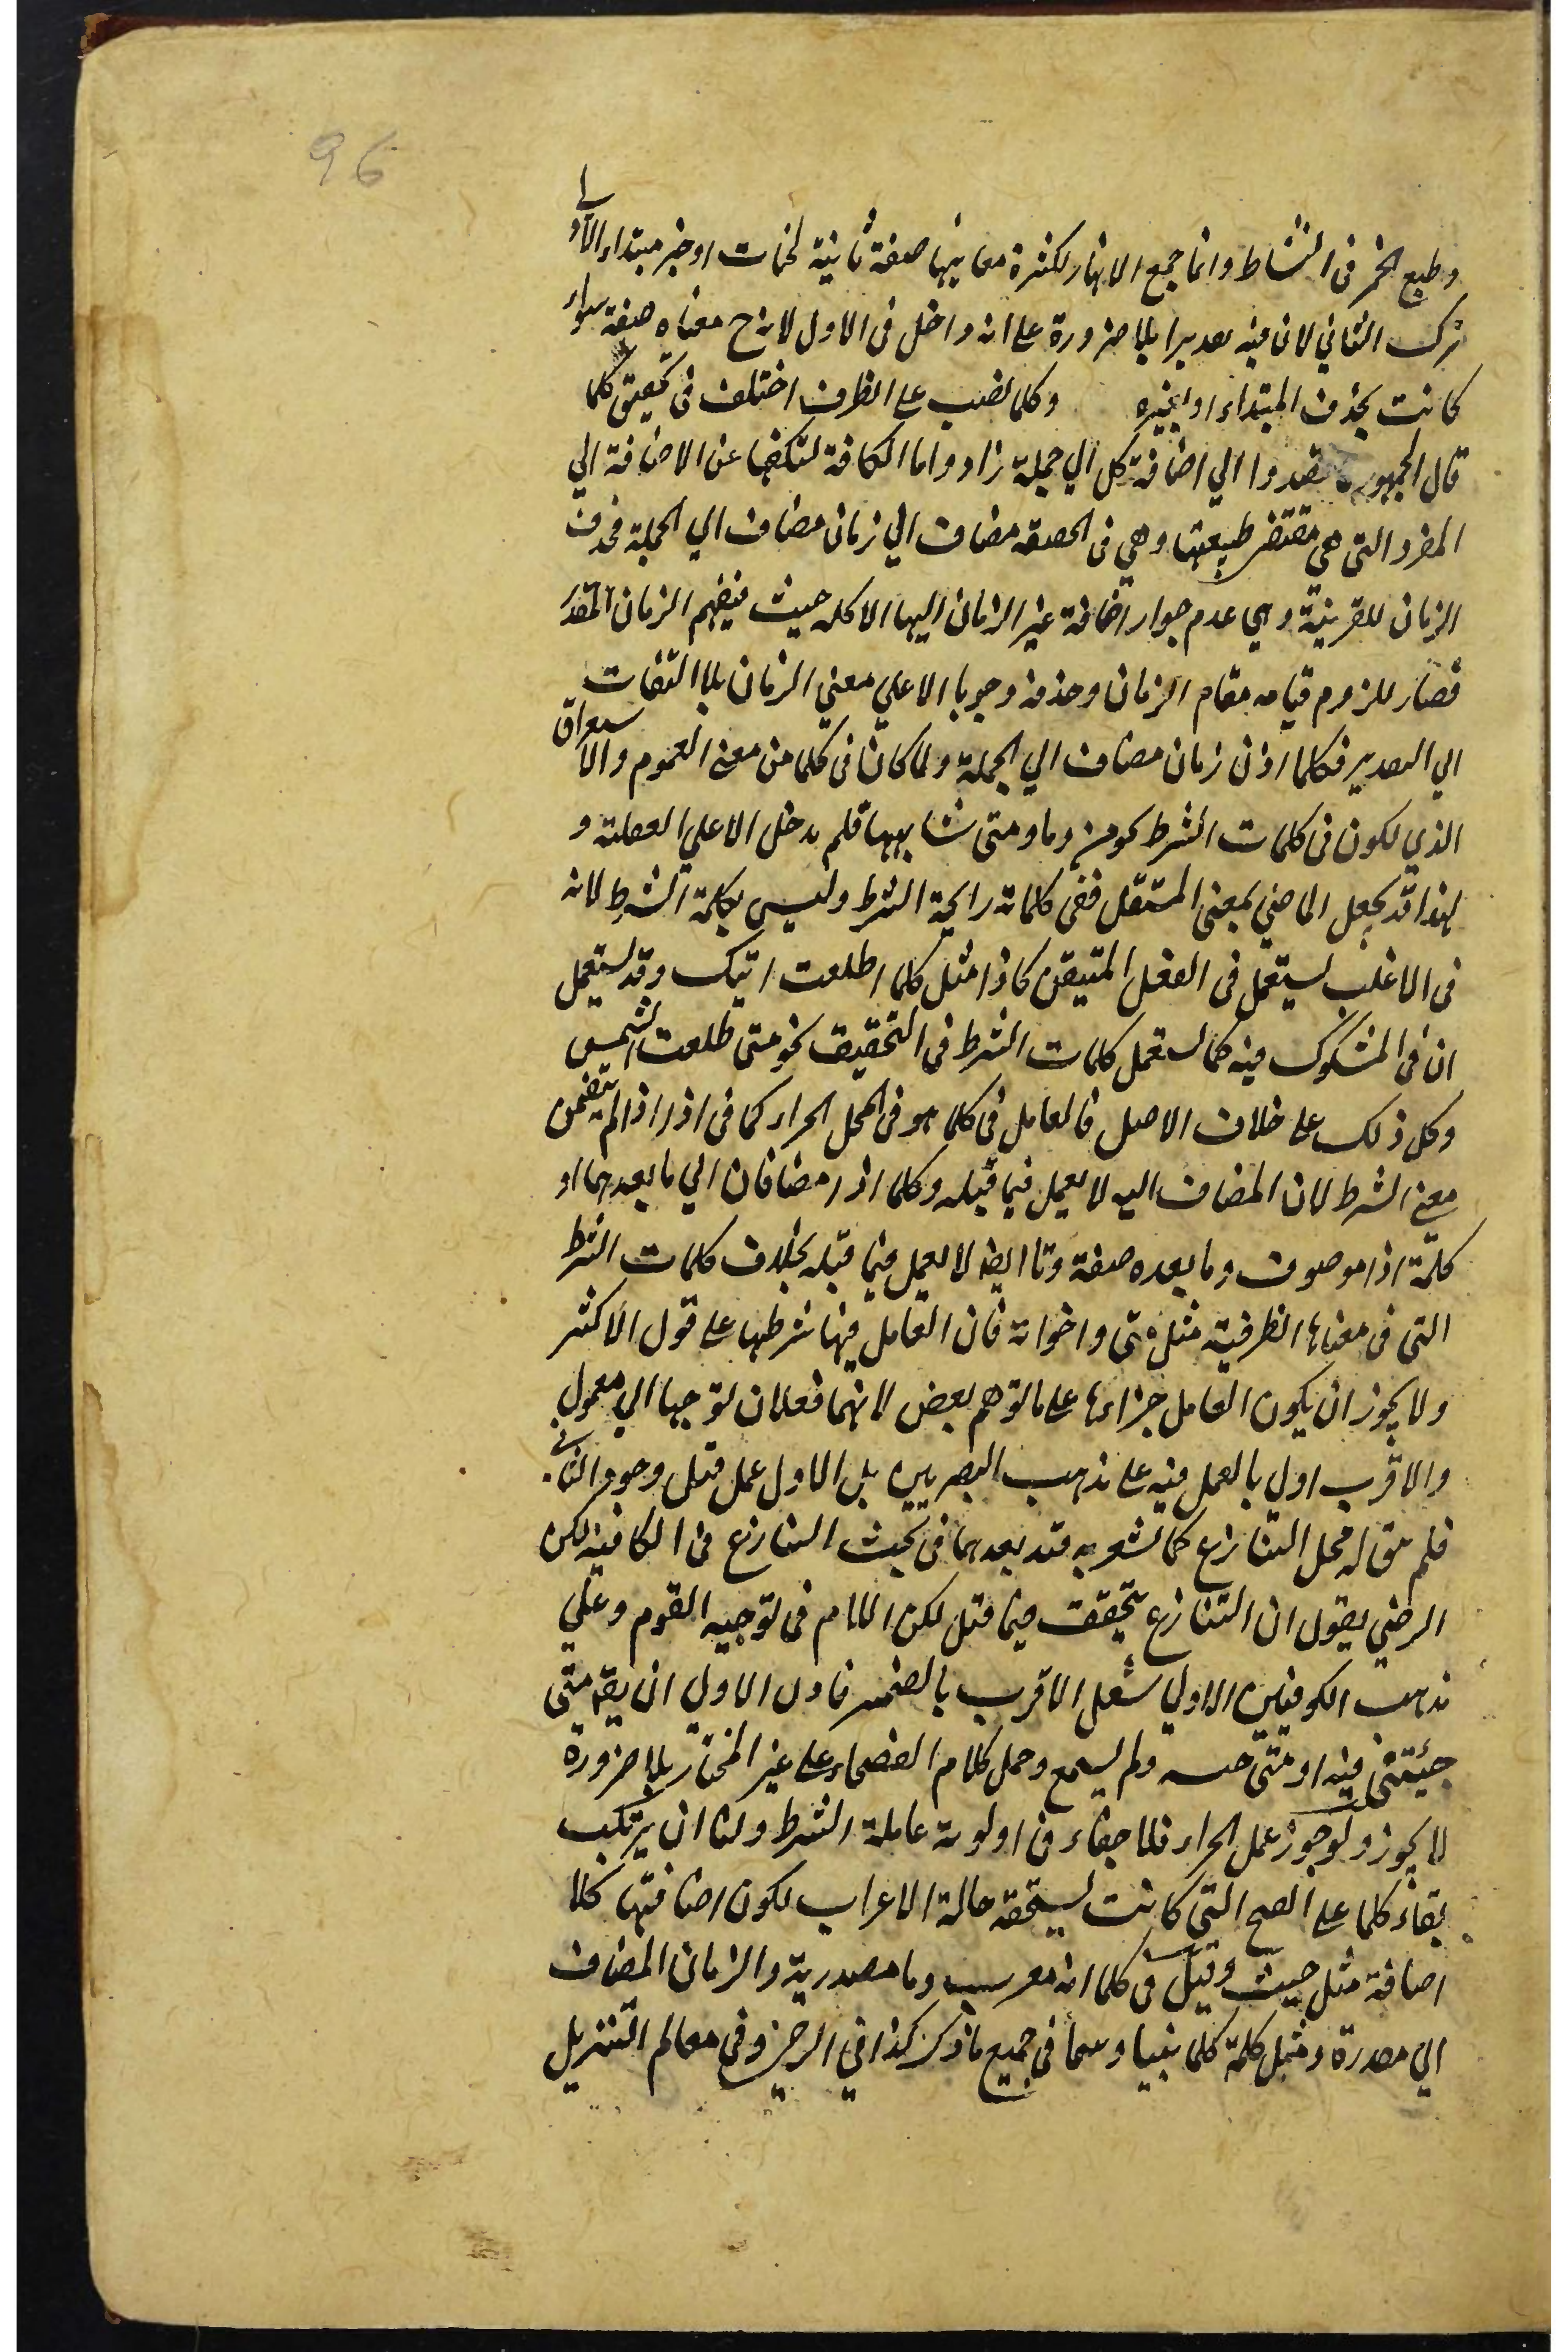 96
وطبع الخمر فى النشاط وانما جمع الانهار لكثرة معانيها صفة ثانية لجنات او خبر مبتداء الاولى
ترك الثاني لان فيه تقديرا بلا ضرورة على انه داخل فى الاول لانه ح معناه صفة سواء
كانت بحذف المبتداء او بغيره وكلما نصب على الظرف اختلف فى تحقيق كلما
قال الجمهور قصدوا الي اضافة كل الي جملة زادوا ما الكافة لتكفها عن الاضافة الي
المفرد التي هي مقتضى طبيعتها وهي فى الحقيقة مضاف الي زمان مضاف الي الجملة فحذف
الزمان للقرينة وهي عدم جواز اضافة غير الزمان اليها الا كلمة حيث فيفهم الزمان المقدر
فصار للزوم قيامه مقام الزمان وحذفه وجوبا الاعلي معني الزمان بلا التفات
الي التقدير فكلما اذن زمان مضاف الي الجملة ولما كان فى كلما من معنى العموم والاستغراق
الذي يكون فى كلمات الشرط نحو من وما ومتى شابهها فلم يدخل الا علي الفعلية و
لهذا قد يجعل الماضي بمعنى المستقبل ففى كلماته رايحة الشرط وليس بكلمة الشرط لانه
فى الاغلب يستعمل فى الفعل المتيقن كاذا مثل كلما طلعت اتيك وقد يستعمل
ان فى المشكوك فيه كما يستعمل كلمات الشرط فى التحقيق نحو متى طلعت الشمس
وكل ذلك على خلاف الاصل فالعامل فى كلما هو فى المحل الجزاء كما فى اذا اذا لم يتضمن
معنى الشرط لان المضاف اليه لا يعمل فيما قبله وكلما اذا مضافان الي ما بعدهما او
كلمة اذا موصوف وما بعده صفة وتا ايضا لا يعمل فيما قبله بخلاف كلمات الشرط
التي فى معناها الظرفية مثل متى واخواته فان العامل فيها شرطها على قول الاكثر
ولا يجوز ان يكون العامل جزاءها على ما توهم بعض لانهما فعلان توجها الي معمول
والاقرب اولى بالعمل فيه على مذهب البصريين بل الاول عمل قبل وجود الثاني
فلم محل التنازع كما يشعر به قيد بعدهما فى بحث التنازع فى الكافية لكن
الرضي يقول ان التنازع يتحقق فيما قبل لكن الامام فى توجيه القوم وعلي
مذهب الكوفيين الاولي شغل الاقرب بالضمير فاذن الاولي ان يقو متى
جئتنى فيه او متى ولم يسمع وحمل كلام الفصحاء على غير المختار بلا ضرورة
لا يجوز ولو جوز عمل الجزاء فلا خفاء فى اولوية عاملة الشرط ولنا ان يرتكب
بقاء كلما على الفتح التي كانت يستحقه حالة الاعراب لكون اضافتها كلا
اضافة مثل حيث وقيل فى كلما انه معرب وما مصدرية والزمان المضاف
الي مصدرة وقيل كلمة كلما فى جميع ما ذكر كذا في الرضي وفى معالم التنزيل